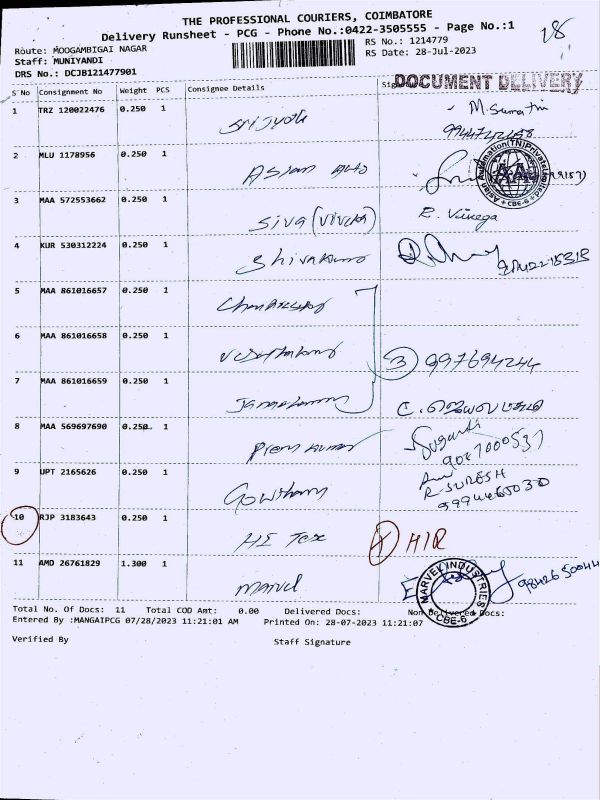 THE PROFESSIONAL COURIERS, COIMBATORE
Delivery Runsheet - PCG - Phone No.:0422-3505555 - Page No.:1
Route: MOOGAMBIGAI NAGAR
Staff: MUNIYANDI
DRS No.: DCJB121477901
RS No.: 1214779
RS Date: 28-Jul-2023
S No Consignment No Weight PCS Consignee Details
DOCUMENT DELIVERY
1 TRZ 120022476 0.250 1
2 MLU 1178956 0.250 1 Asian Auto
Asian Automation(TN)Private Limited CBE-6
3 MAA 572553662 0.250 1 Siva (Viveka)
4 KUR 530312224 0.250 1 Shivakumar
5 MAA 861016657 0.250 1
6 MAA 861016658 0.250 1
3 997694244
7 MAA 861016659 0.250 1
8 MAA 569697690 0.250 1 Prem Kumar Suganti
9087000537
9 UPT 2165626 0.250 1 Gowtham R-SURESH
10 RJP 3183643 0.250 1 HI Tex
11 AMD 26761829 1.300 1 Marvel
MARVEL INDUSTRIES CBE-6
9842650044
Total No. Of Docs: 11 Total COD Amt: 0.00 Delivered Docs: Non Delivered Docs:
Entered By :MANGAIPCG 07/28/2023 11:21:01 AM Printed On: 28-07-2023 11:21:07
Verified By Staff Signature